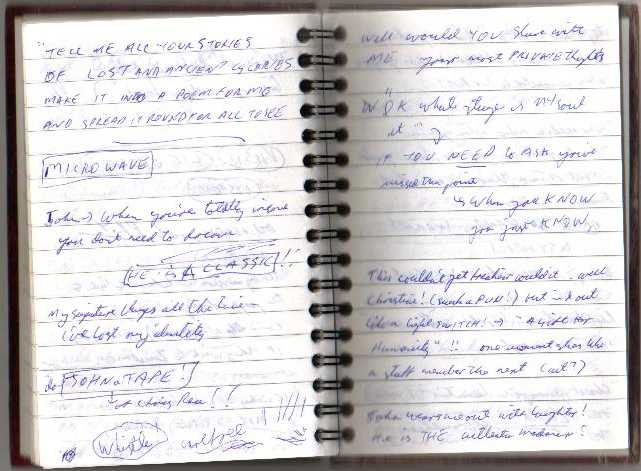 "TELL ME ALL YOUR STORIES
OF LOST AND ANCIENT GLORIES
MAKE IT INTO A POEM FOR ME
AND SPREAD IT ROUND FOR ALL TO SEE
MICROWAVE
John → When you're totally insane
you don't need to dream
HE IS A CLASSIC!!
My signature changes all the time
i've lost my identity
do JOHN a TAPE!
Whistle
Well would YOU Share with
ME your most PRIVATE thoughts
what is my soul
IF YOU NEED to ASK you've
missed the point
↳ When you KNOW
you just KNOW
This couldn't get fresher could it. well
Christine! (such a PUN!) but
like a light SWITCH! → "A
Humanity" !! one moment she's like
a staff member the next (cut?)
John wears me out with laughter!
He is THE